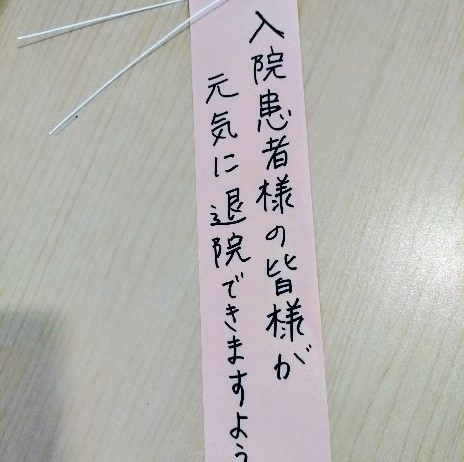 入院患者様の皆様が
元気に退院できますよう